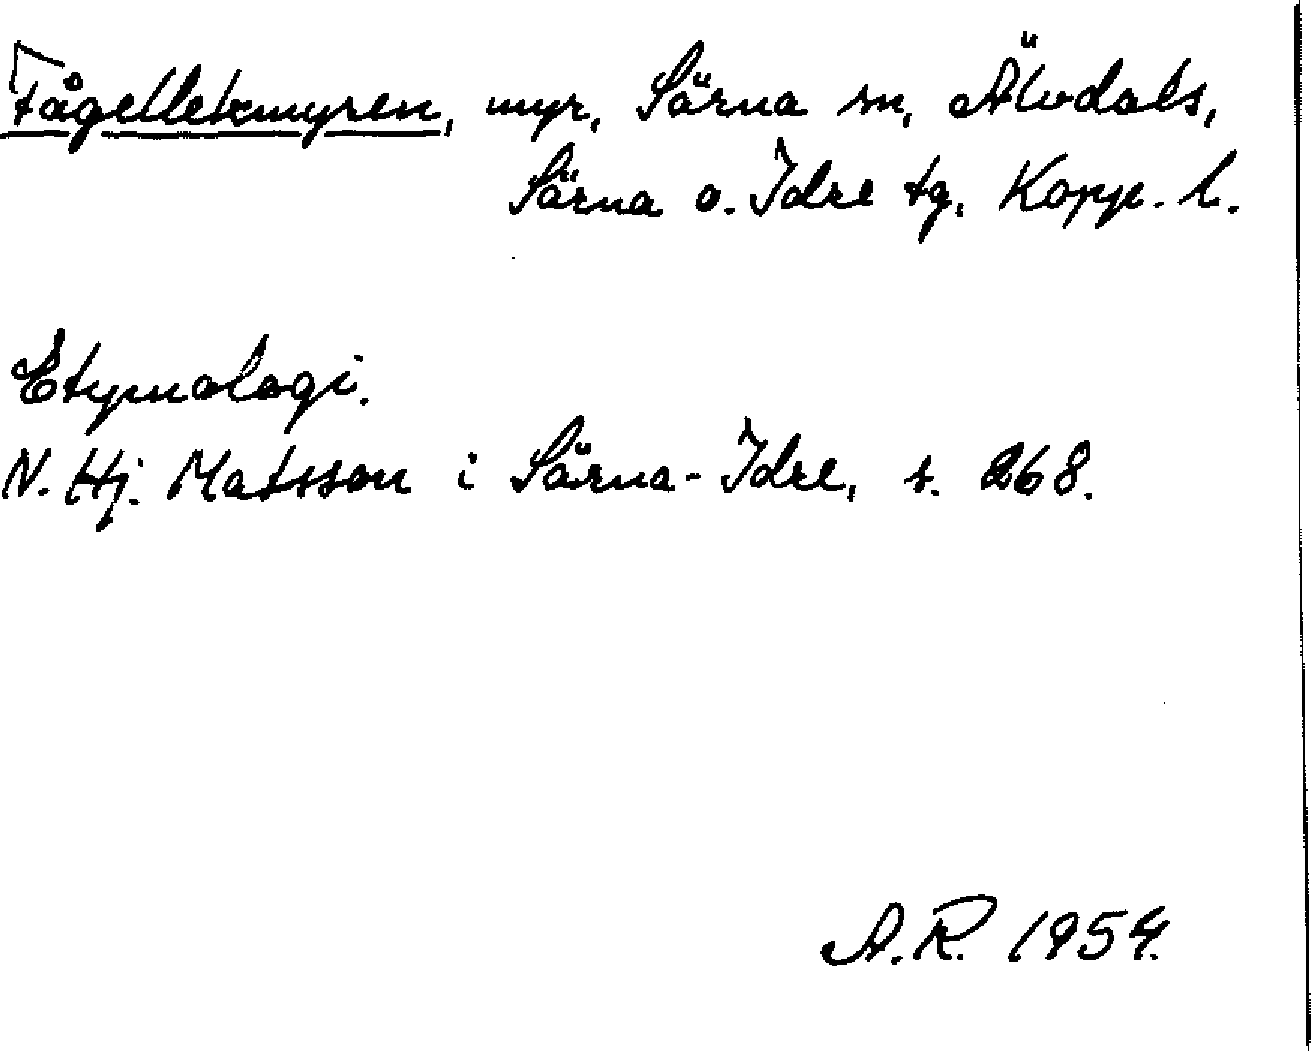 Fågellekmyren, myr, Särna sn, Älvdals,
Särna o. Idre tg, Kopp. l.
Etymologi.
N. Hj. Matsson i Särna-Idre, s. 268.
A.R. 1954.